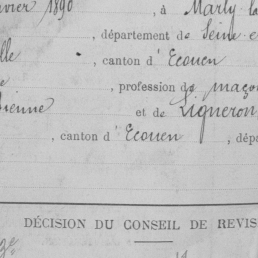 vrier 1890, à Marly-la
, département de Seine-e
lle, canton d'Ecouen
e, profession de maço
ienne et de Ligneron
, canton d'Ecouen, dép
DÉCISION DU CONSEIL DE REVIS